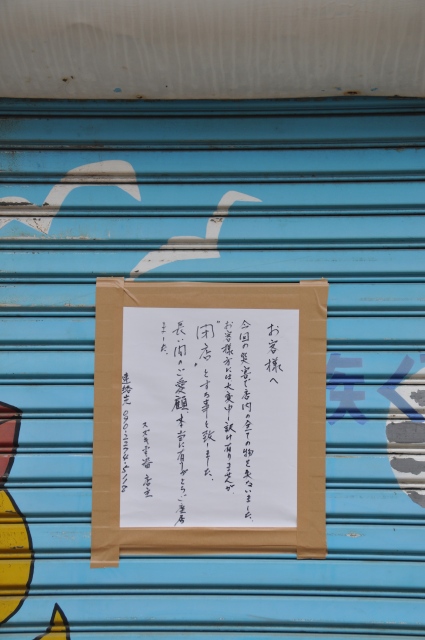 お客様へ
今回の災害で店内の全ての物を失ないました。
お客様方には大変申し訳け有りませんが
"閉店"とする事と致しました。
長い間のご愛顧本当に有りがとうご座居
ました。
スズキ 店主
連絡先